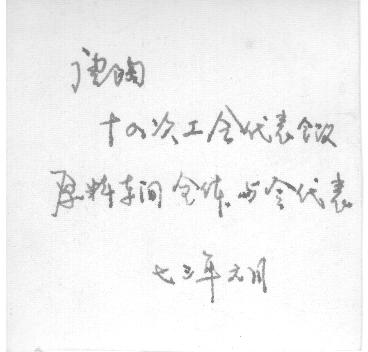 唐陶
十四次工会代表会议
原料车间全体与会代表
七三年元月